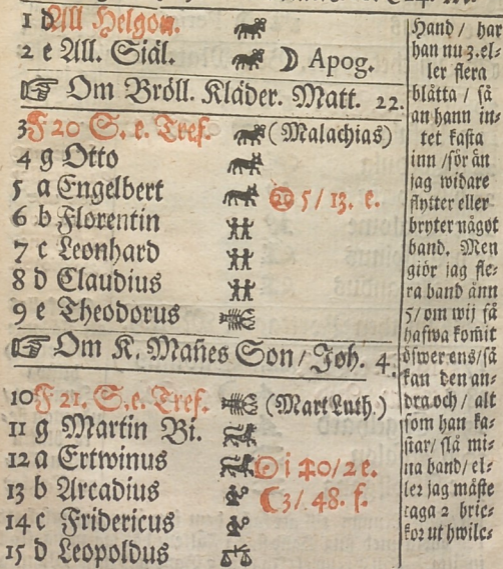 1 d All Helgon.
2 e All. Siäl. ☽ Apog.
☞ Om Bröll. Kläder. Matt. 22.
3 F 20 S. e. Tref. (Malachias)
4 g Otto
5 a Engelbert 5/ 13. e.
6 b Florentin
7 c Leonhard
8 d Claudius
9 e Theodorus
☞ Om K. Mañes Son/ Joh. 4.
10 F 21. S. e. Tref. (Mart Luth.)
11 g Martin Bi.
12 a Ertwinus ☉ i ♐0/ 2 e.
13 b Arcadius ☾3/ 48. f.
14 c Fridericus
15 d Leopoldus
Hand/ har
han nu 3. el-
ler flera
blåtta / så
an hann in-
tet kasta
inn /för än
jag widare
flytter eller
bryter något
band. Men
giör jag fle-
ra band änn
5/ om wij få
hafwa komit
öfwer ens/ så
kan den an-
dra och / alt
som han ka-
star/ slå mi-
na band/ el-
ler jag måste
taga 2 bric-
kor ut hwilc-